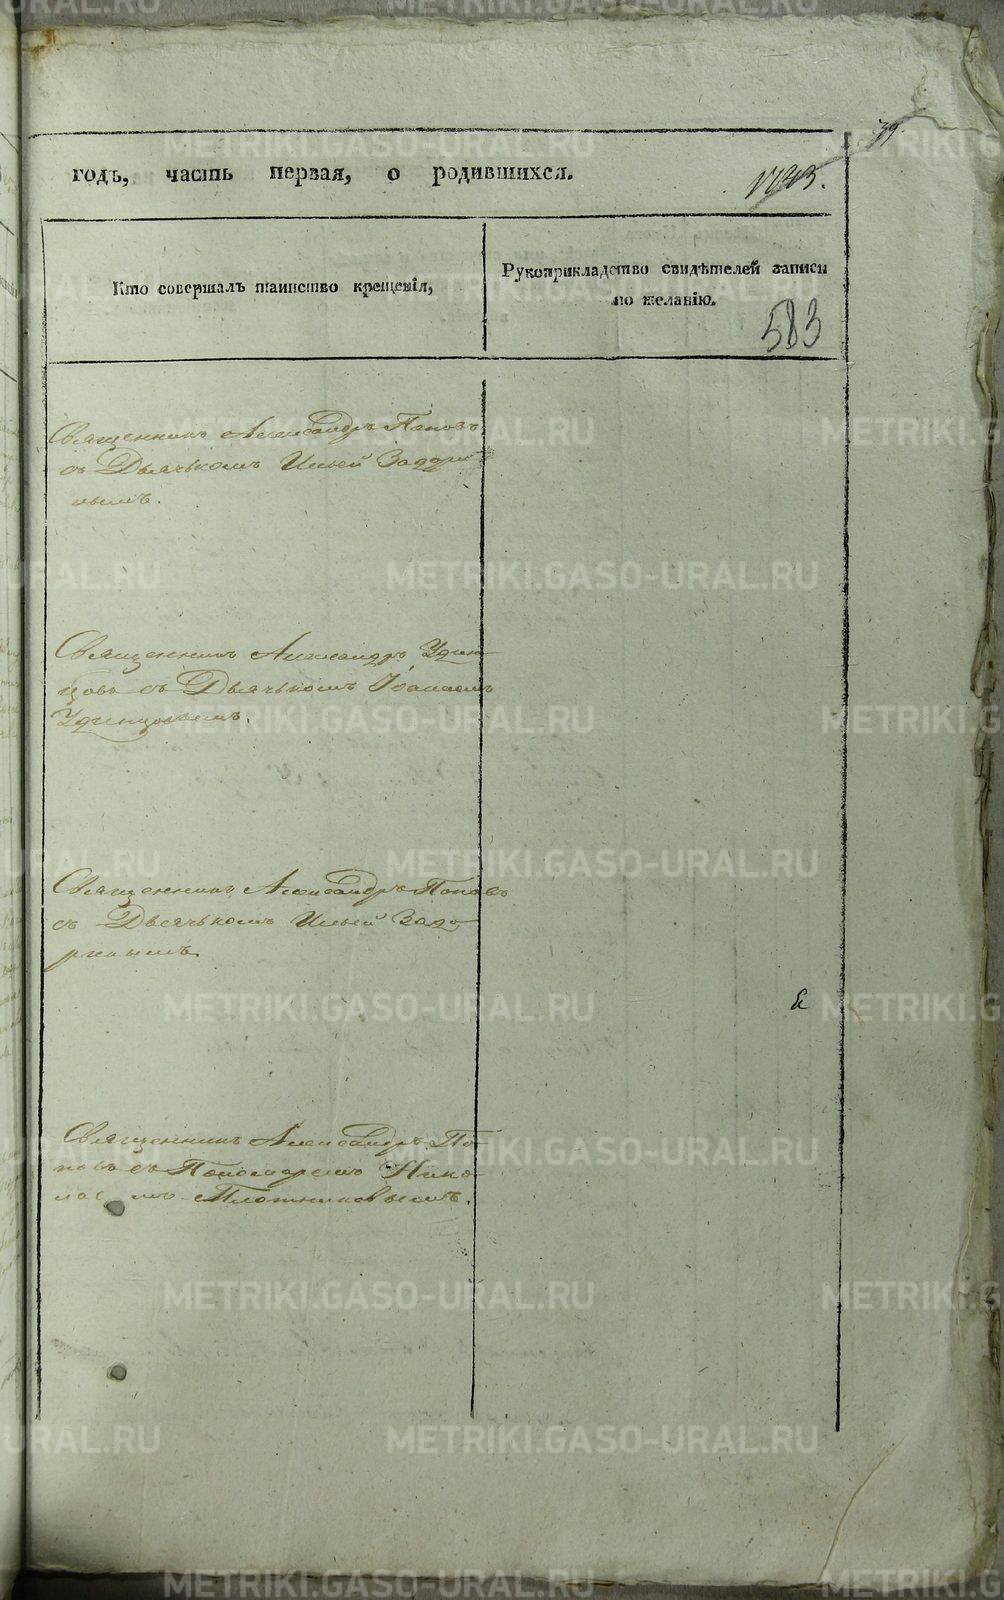 39.
годъ, часть первая, о родившихся.
Кто совершалъ таинство крещенія,
Рукоприкладство свидѣтелей записи
по желанію.
583
Священникъ Александръ Поповъ
съ Дьячькомъ Ильей Задор
нымъ.
Священникъ Александръ Удин-
цовъ съ Дьячькомъ Іоанномъ
Удинцовымъ.
Священникъ Александръ Поповъ
съ Дьячькомъ Ильей Задо-
рнымъ.
Священникъ Александръ По-
повъ съ Пономаремъ Нико-
лаемъ Плотниковымъ.
METRIKI.GASO-URAL.RU